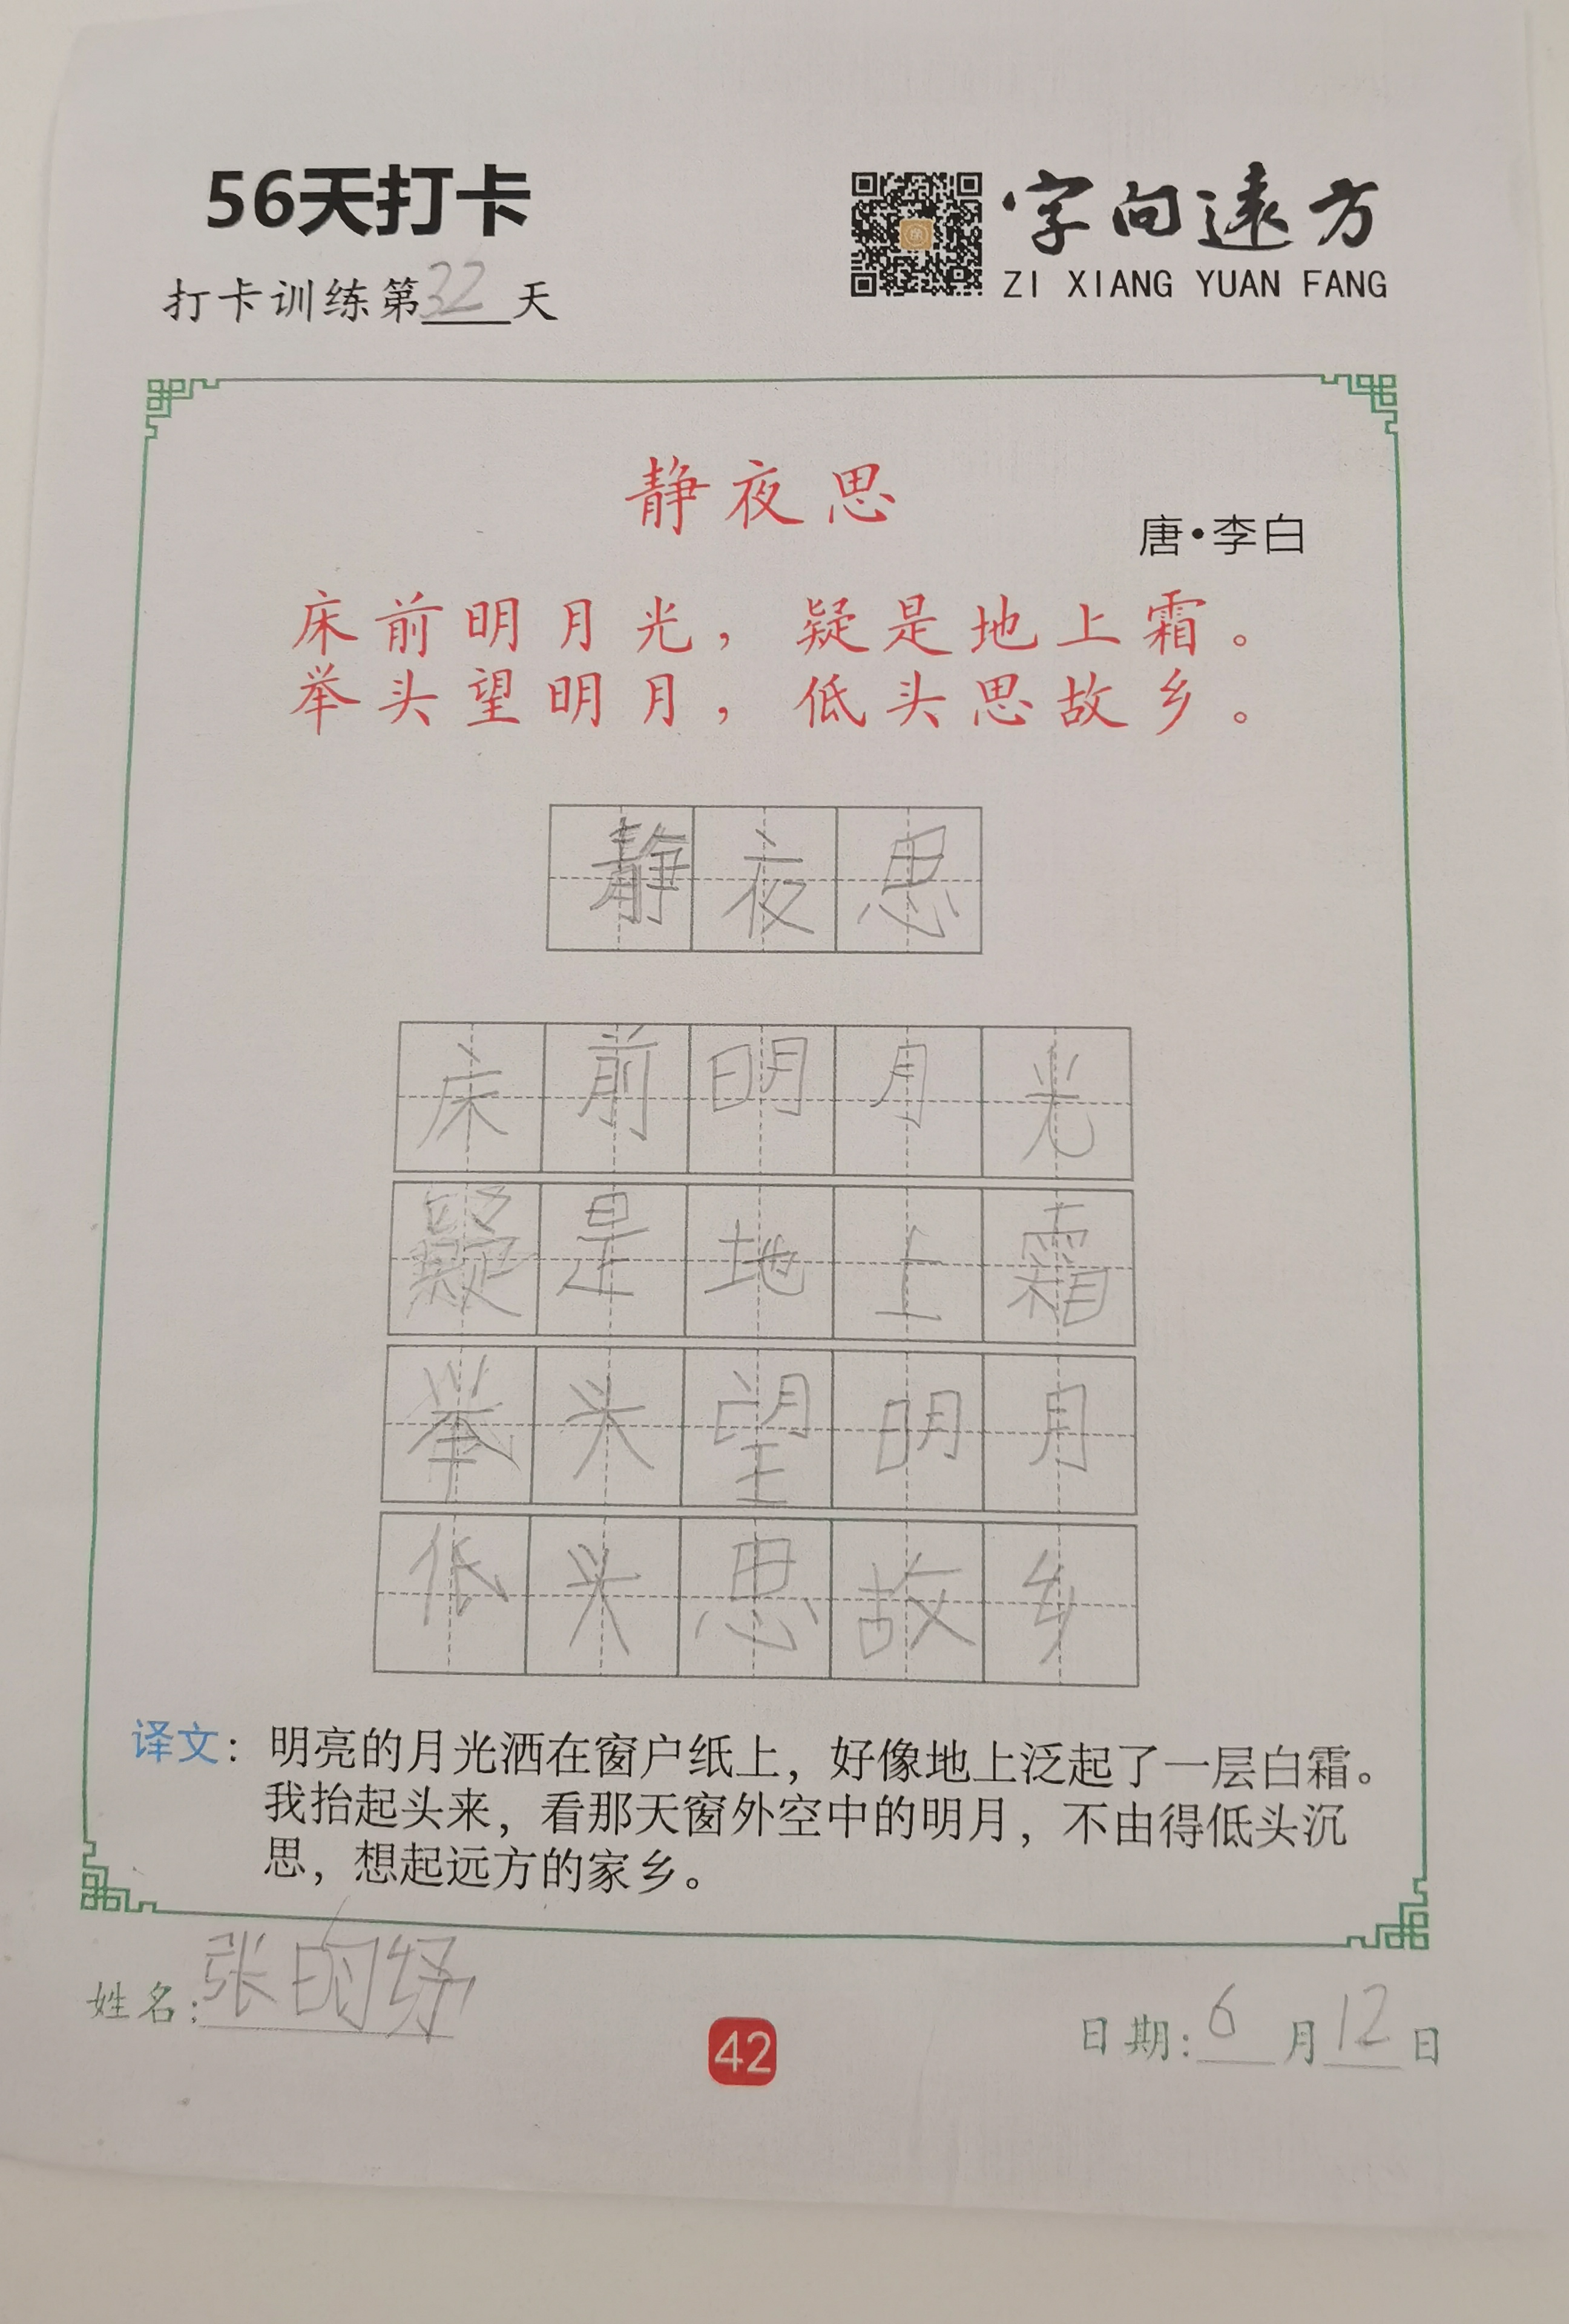 56天打卡
打卡训练第32天
字向遠方
ZI XIANG YUAN FANG
静夜思
唐·李白
床前明月光，疑是地上霜。
举头望明月，低头思故乡。
静夜思
床前明月光
疑是地上霜
举头望明月
低头思故乡
译文：明亮的月光洒在窗户纸上，好像地上泛起了一层白霜。
我抬起头来，看那天窗外空中的明月，不由得低头沉
思，想起远方的家乡。
姓名：张
42
日期：6月12日